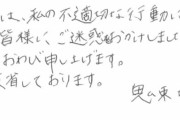 は、私の不適切な行動に
皆様に、ご迷惑おかけしまし
おわび申し上げます。
省しております。